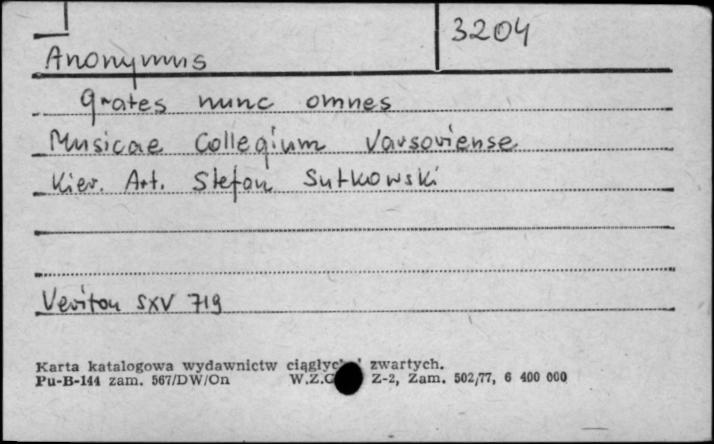 3204
Anonymus
Grates nunc omnes
Musicae Collegium Varsoviense
Kier. Art. Stefan Sutkowski
Veriton SXV 719
Karta katalogowa wydawnictw zwartych.
Pu-B-144 zam. 567/DW/On Z-2, Zam. 502/77, 6 400 000